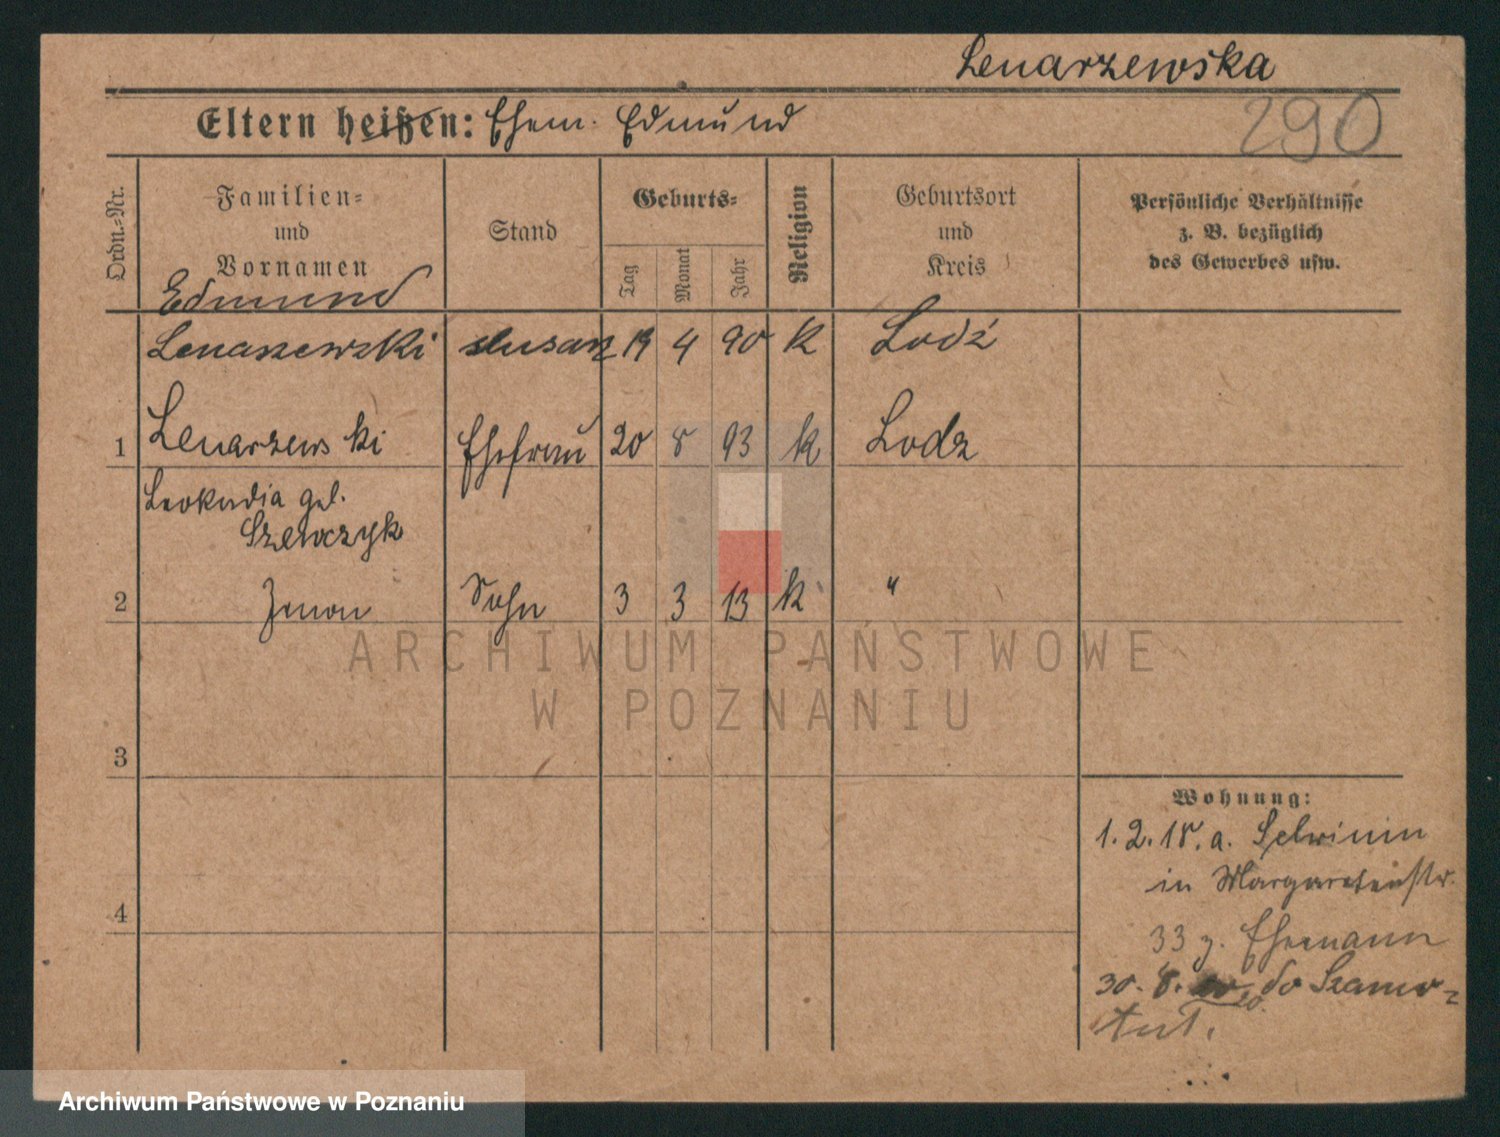 Lenarzewska
290
Eltern heißen: Ehem. Edmund
Ordn.-Nr.
Familien-
und
Vornamen
Stand
Geburts-
Tag
Monat
Jahr
Religion
Geburtsort
und
Kreis
Persönliche Verhältnisse
z. B. bezüglich
des Gewerbes usw.
Edmund
Lenarzewski 4 90 k Lodź
1 Lenarzewski Ehefrau 20 8 93 k Lodz
Leokadia geb.
Szewczyk
2 Zenon Sohn 3 3 13 k "
ARCHIWUM PAŃSTWOWE
W POZNANIU
3
4
Wohnung:
1.2.18. a.
in Margaretenstr.
33 z. Ehemann
30. 8. 20. do Szamo-
tuł.
Archiwum Państwowe w Poznaniu